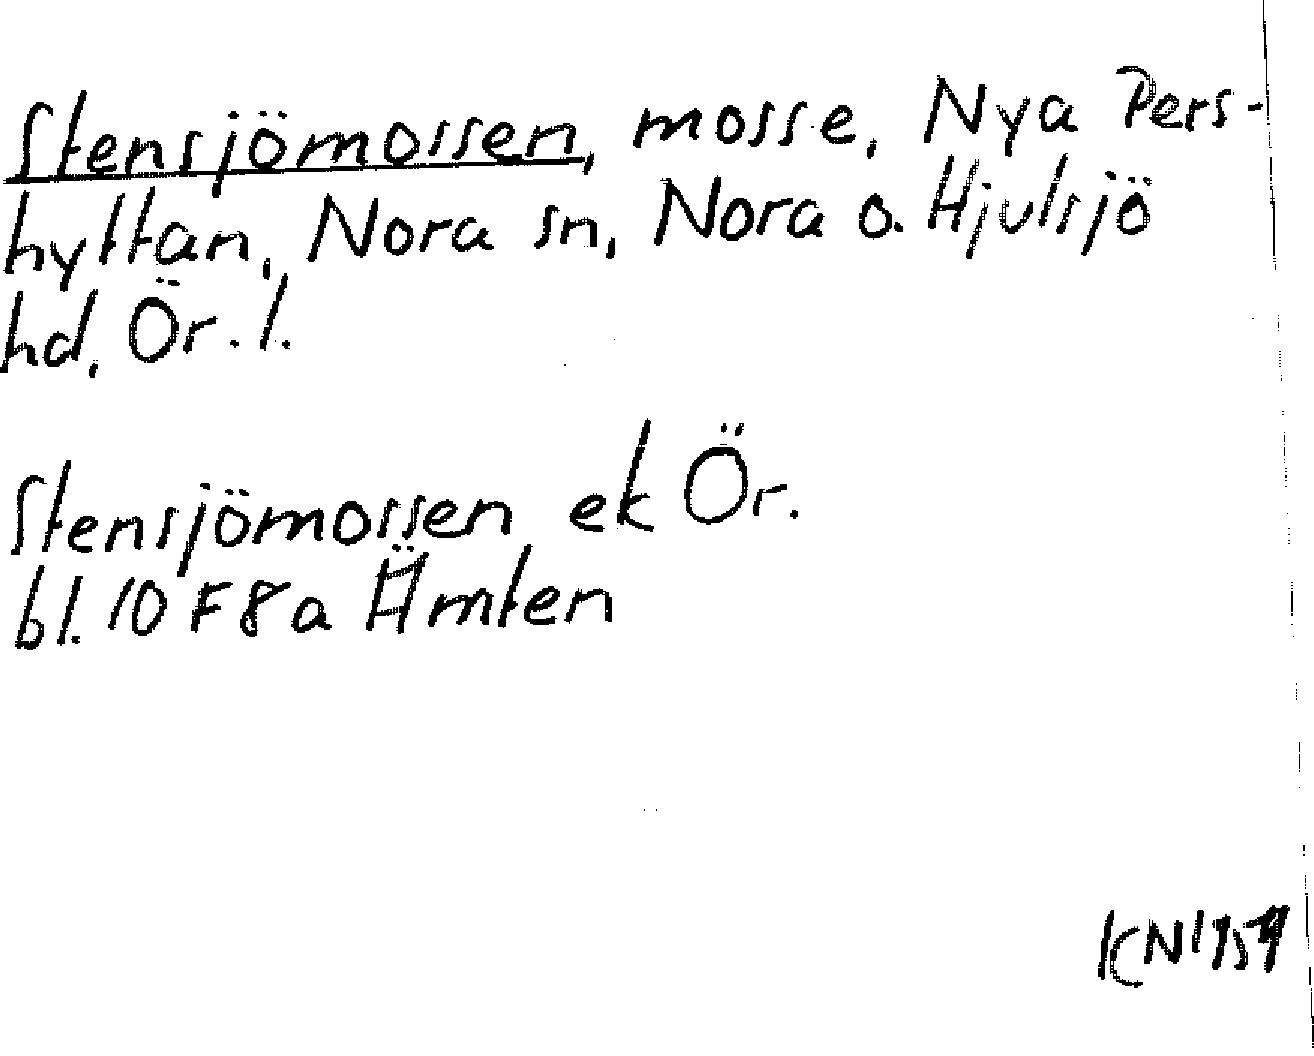 Stensjömossen, mosse, Nya Pers-
hyttan, Nora sn, Nora o. Hjulsjö
hd, Ör. l.
Stensjömossen ek Ör.
bl. 10 F 8 a Ämten